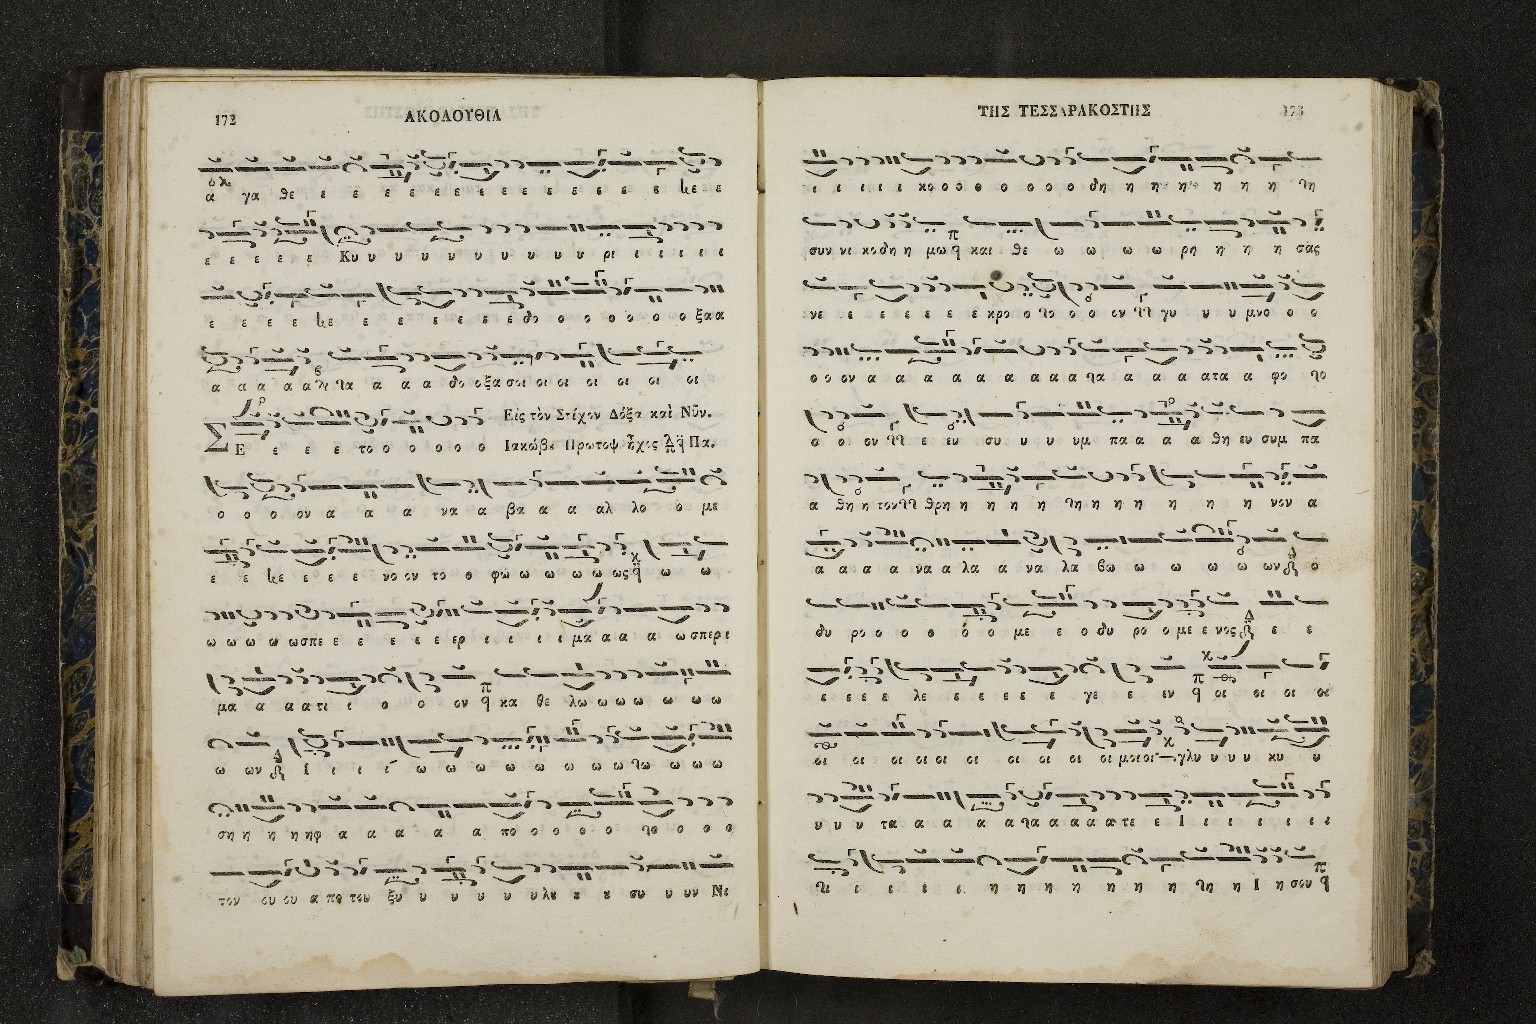 172
ΑΚΟΛΟΥΘΙΑ
α γα θε ε ε ε ε ε ε ε ε ε ε ε ε ε ε
ε ε ε ε ε Κυ υ υ υ υ υ υ υ υ υ ρι ι ι ι ι
ε ε ε ε ε ε ε ε ε ε ε δο ο ο ο ο ο ο ξα α
α α α α α τα α α α δο ο ξα σοι οι οι οι οι οι οι
Εἰς τὸν Στίχον Δόξα καὶ Νῦν.
ΣΕ ε ε ε το ο ο ο ο ο Ιακώβου Πρωτοψ ἦχος Πα.
ο ο ο ον α α α να α βα α α αλ λο ο με
ε ε ε ε ε ε νο ον το ο φω ω ω ω ω ως ω ω
ω ω ω ω ωσπε ε ε ε ε ερ ι ι ι ι μα α α α ωσπερ ι
μα α α α τι ι ο ο ον κα θε λω ω ω ω ω ω ω
ω ων ι ι ι ι ω ω ω ω ω ω ω ω τω ω ω ω
ση η η η ηφ α α α α α α πο ο ο ο ο το ο ο ο
τον ου ου α πο του ξυ υ υ υ υ υ λου ου ου συ υ υν Νι
ΤΗΣ ΤΕΣΣΑΡΑΚΟΣΤΗΣ
173
ι ι ι ι ι κο ο ο ο ο ο ο ο ο δη η η η η η η η τη
συν νι κο δη η μω και θε ω ω ω ω ρη η η η σας
νε ε ε ε ε ε ε κρο ο το ο ο ον γυ υ υ μνο ο ο
ο ο ον α α α α α α α α α τα α α α α τα α φο το
ο ο ον ε ευ συ υ υ υμ πα α α α θη ευ συμ πα
α θη η τον θρη η η η η η τη η η η η η η νον α
α α α α να α λα α να λα βω ω ω ω ω ω ων ο
δυ ρο ο ο ο ο ο με ε ο δυ ρο ο με ε νος ε ε
ε ε ε ε λε ε ε ε ε ε γε ε εν οι οι οι οι
οι οι οι οι οι οι οι οι οι οι μοι οι γλυ υ υ υ κυ υ
υ υ υ τα α α α α τα α α α α τε ε Ι ι ι ι ι ι ι
τι ι ι ι ι η η η η η η η η τη η Ι η σου